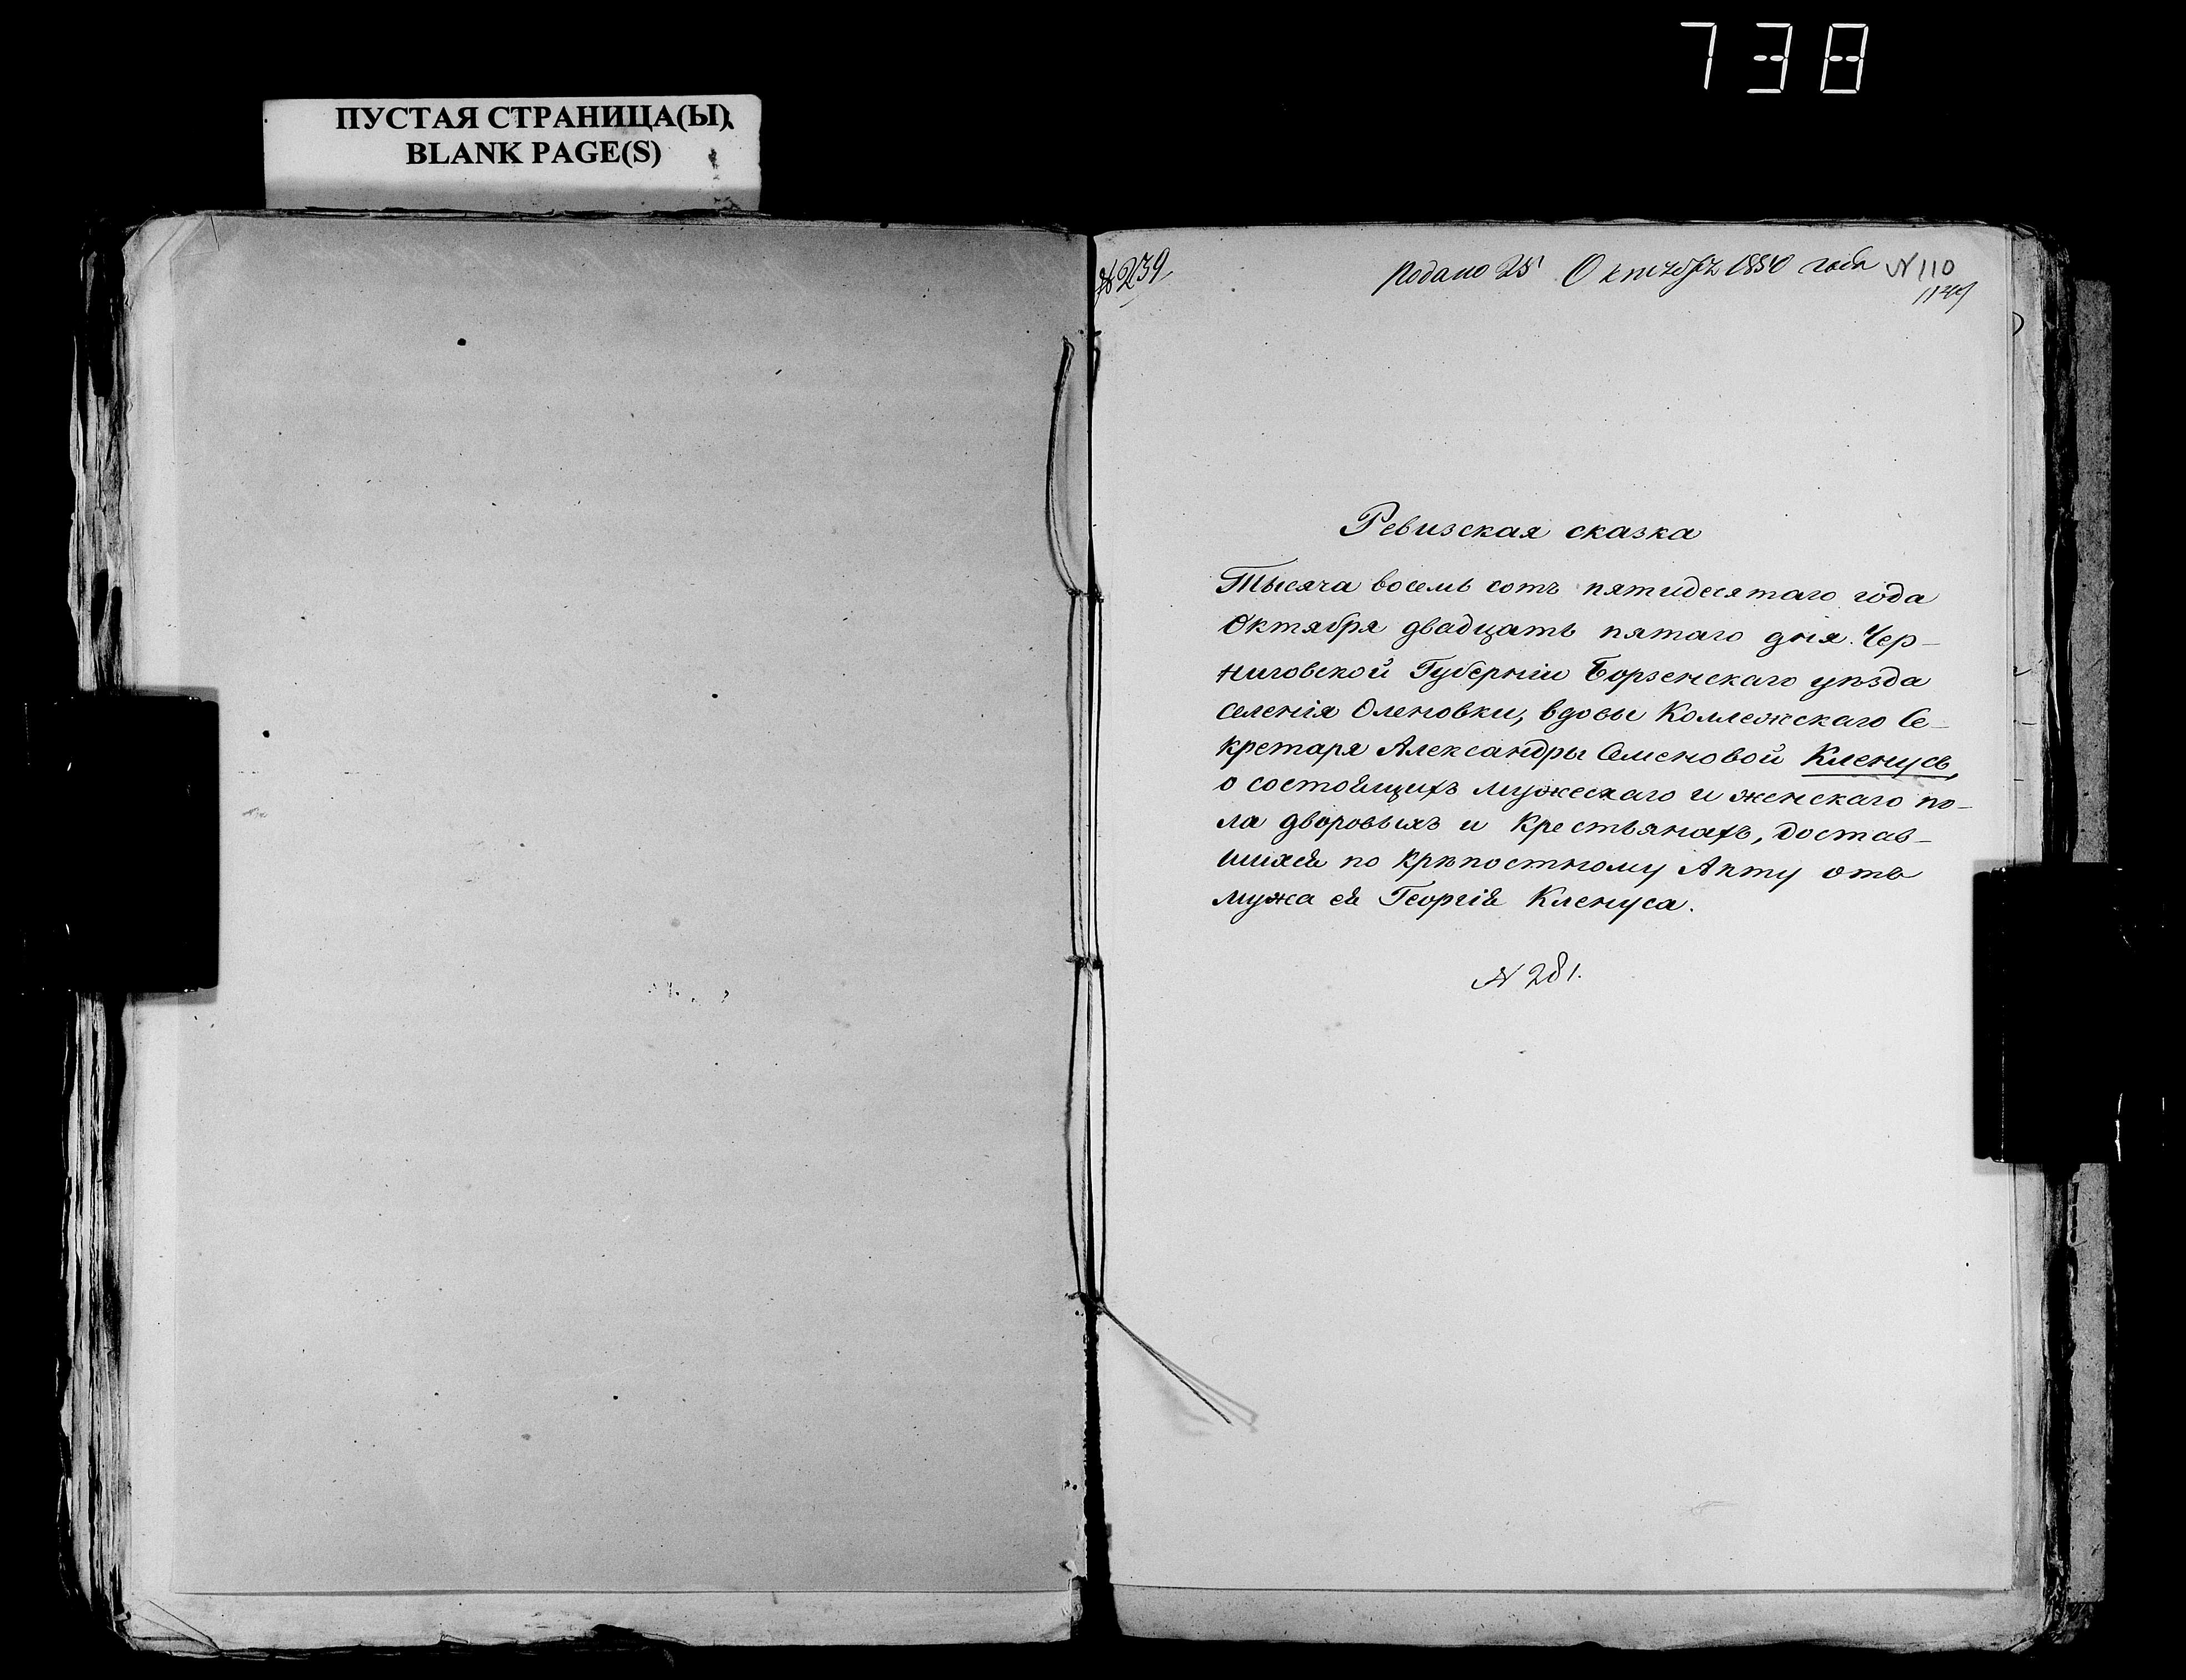 738
ПУСТАЯ СТРАНИЦА(Ы)
BLANK PAGE(S)
№ 239
Подано 25 Октября 1850 года № 110
Ревизская сказка
Тысяча восемь сотъ пятидесятаго года
Октября двадцать пятаго дня. Чер-
ниговской Губерніи Борзенскаго уѣзда
селенія Оленовки, вдовы Коллежскаго Се-
кретаря Александры Семеновой Кленусъ,
о состоящихъ мужескаго и женскаго по-
ла дворовыхъ и крестьянахъ, достав-
шихся по крѣпостному Акту отъ
мужа ея Георгія Кленуса.
№ 281.